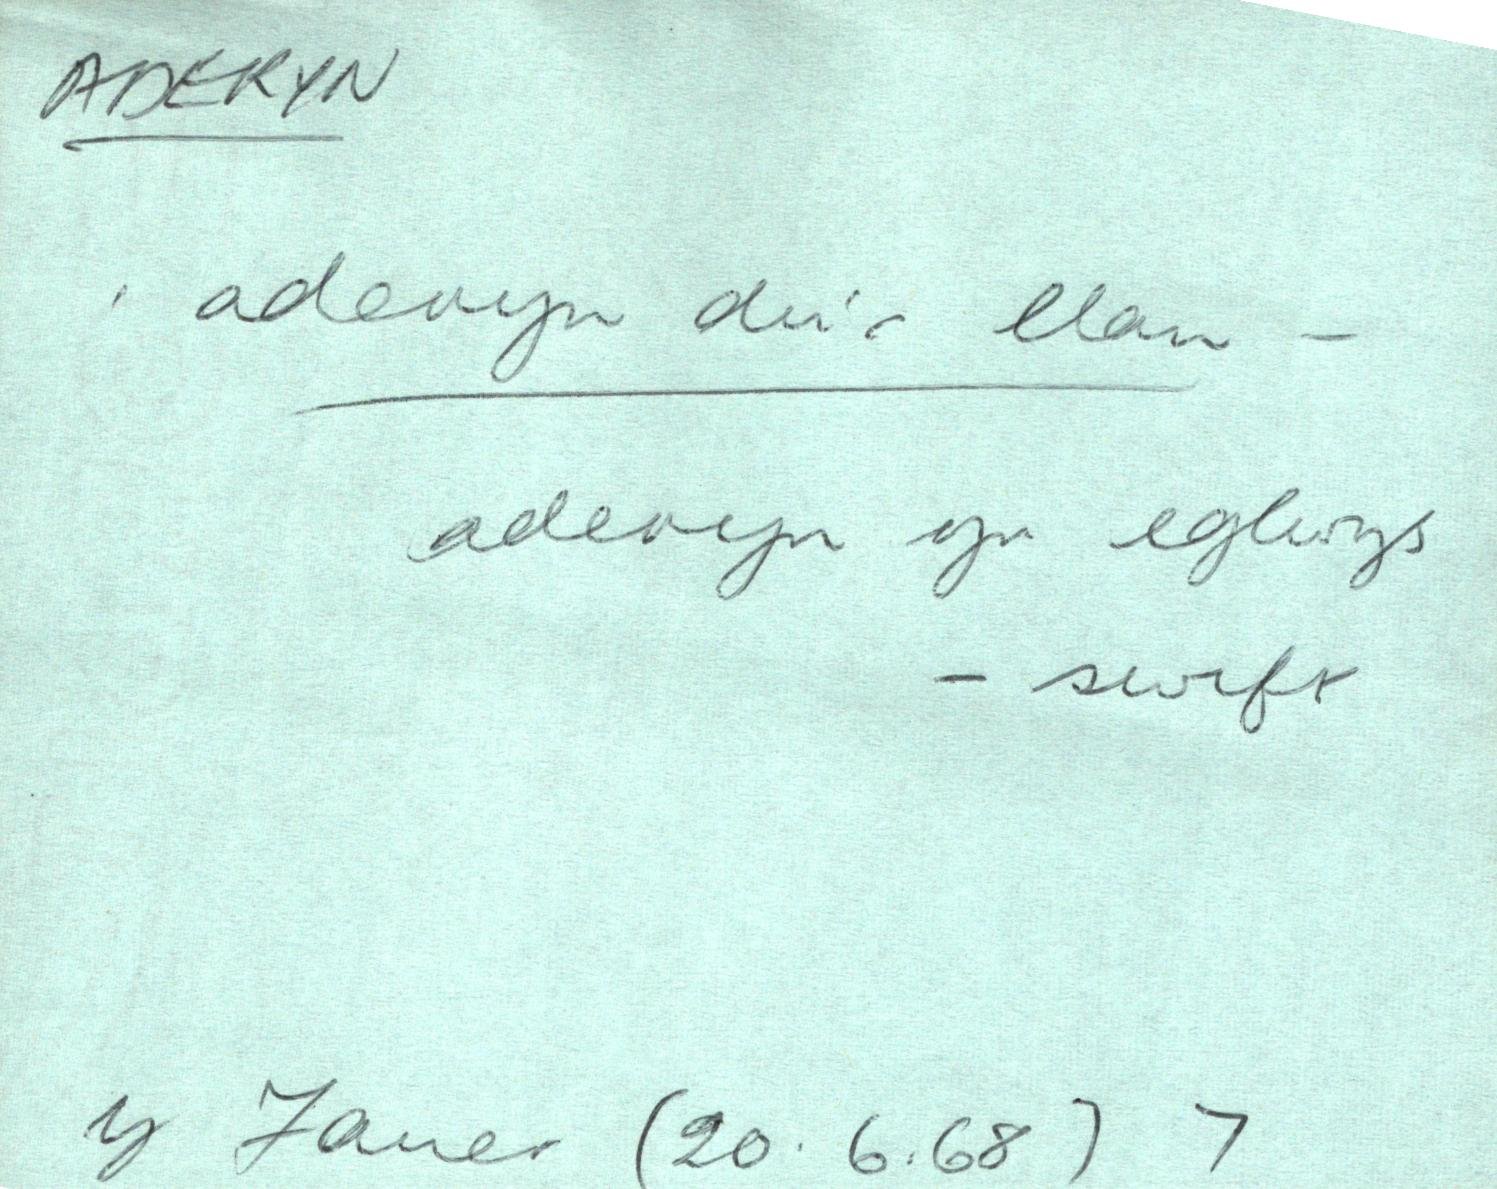 ADERYN
' aderyn du'r llan -
aderyn yr eglwys
- swift
y Faner (20.6.68) 7